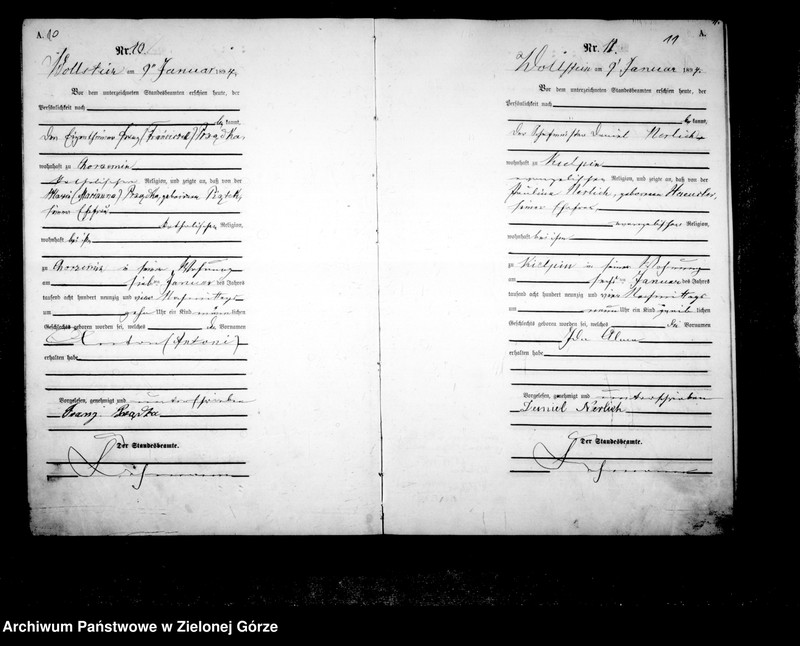 A. 10
Nr. 10
Wollstein am 9 Januar 1894.
Vor dem unterzeichneten Standesbeamten erschien heute, der
Persönlichkeit nach
kannt,
Franz (Franciszek)
wohnhaft zu Chorzemin
katholischer Religion, und zeigte an, daß von der
Maria (Marianna) geborenen
seiner Ehefrau
katholischer Religion,
wohnhaft bei ihm
zu Chorzemin in seiner Wohnung
am sieben Januar des Jahres
tausend acht hundert neunzig und vier Nachmittags
um zehn Uhr ein Kind männlichen
Geschlechts geboren worden sei, welches den Vornamen
Anton (Antoni)
erhalten habe
Vorgelesen, genehmigt und unterschrieben
Franz
Der Standesbeamte.
11 A.
Nr. 11
Wollstein am 9 Januar 1894.
Vor dem unterzeichneten Standesbeamten erschien heute, der
Persönlichkeit nach
kannt,
Daniel Nerlich
wohnhaft zu Kielpin
evangelischer Religion, und zeigte an, daß von der
Pauline Nerlich, geborenen
seiner Ehefrau
evangelischer Religion,
wohnhaft bei ihm
zu Kielpin in seiner Wohnung
am sechs Januar des Jahres
tausend acht hundert neunzig und vier Nachmittags
um neun Uhr ein Kind weiblichen
Geschlechts geboren worden sei, welches die Vornamen
Ida Alma
erhalten habe
Vorgelesen, genehmigt und unterschrieben
Daniel Nerlich
Der Standesbeamte.
Archiwum Państwowe w Zielonej Górze